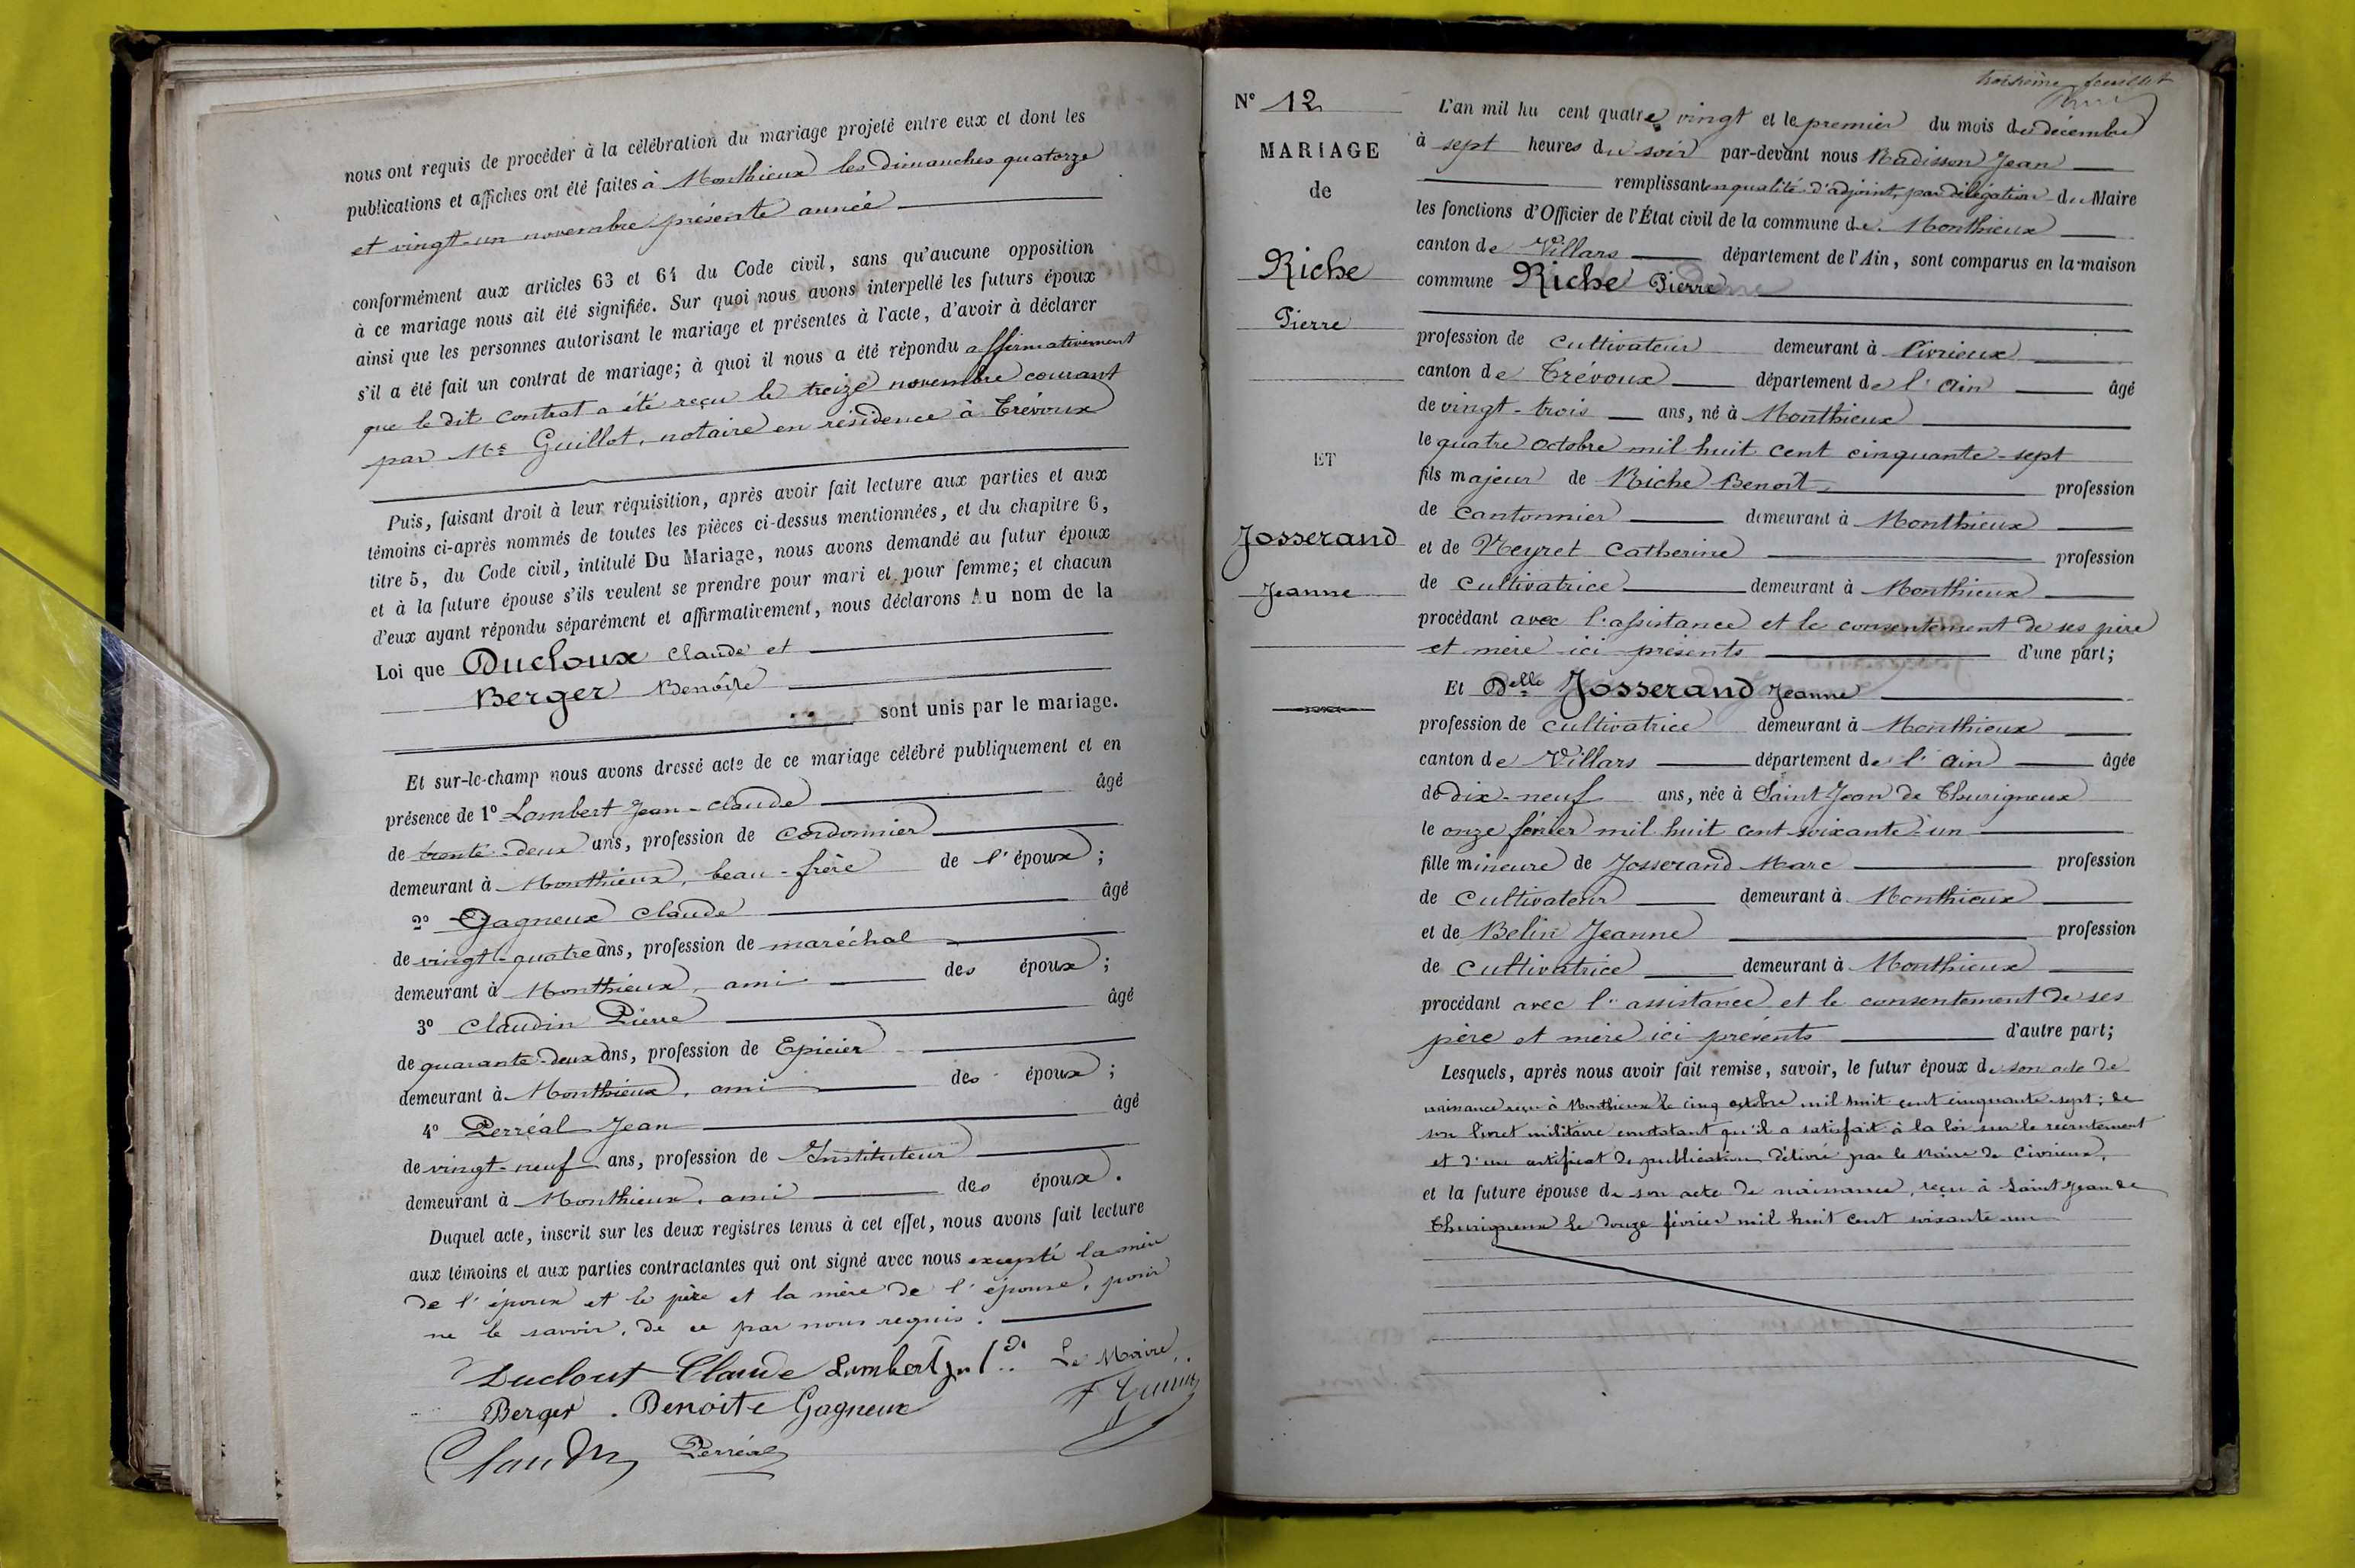 nous ont requis de procéder à la célébration du mariage projeté entre eux et dont les
publications et affiches ont été faites à Monthieux les dimanches quatorze
et vingt-un novembre présente année
conformément aux articles 63 et 64 du Code civil, sans qu'aucune opposition
à ce mariage nous ait été signifiée. Sur quoi nous avons interpellé les futurs époux
ainsi que les personnes autorisant le mariage et présentes à l'acte, d'avoir à déclarer
s'il a été fait un contrat de mariage; à quoi il nous a été répondu affirmativement
que le dit contrat a été reçu le treize novembre courant
par Me Guillot, notaire en résidence à Trévoux
Puis, faisant droit à leur réquisition, après avoir fait lecture aux parties et aux
témoins ci-après nommés de toutes les pièces ci-dessus mentionnées, et du chapitre 6,
titre 5, du Code civil, intitulé Du Mariage, nous avons demandé au futur époux
et à la future épouse s'ils veulent se prendre pour mari et pour femme; et chacun
d'eux ayant répondu séparément et affirmativement, nous déclarons Au nom de la
Loi que Ducloux Claude et
Berger Benoîte
sont unis par le mariage.
Et sur-le-champ nous avons dressé acte de ce mariage célébré publiquement et en
présence de 1° Lambert Jean-Claude âgé
de trente-deux ans, profession de Cordonnier
demeurant à Monthieux, beau-frère de l'époux;
2° Gagneux Claude âgé
de vingt-quatre ans, profession de maréchal
demeurant à Monthieux, ami des époux;
3° Claudin Pierre âgé
de quarante-deux ans, profession de Epicier
demeurant à Monthieux, ami des époux;
4° Perréal Jean âgé
de vingt-neuf ans, profession de Instituteur
demeurant à Monthieux, ami des époux.
Duquel acte, inscrit sur les deux registres tenus à cet effet, nous avons fait lecture
aux témoins et aux parties contractantes qui ont signé avec nous excepté la mère
de l'époux et le père et la mère de l'épouse, pour
ne le savoir, de ce par nous requis.
Duclout Claude Lambert Le Maire,
Berger Benoite Gagneux
Claudin Perréal
troisième feuillet
N° 12
MARIAGE
de
Riche
Pierre
ET
Josserand
Jeanne
L'an mil hu cent quatre vingt et le premier du mois de décembre
à sept heures du soir par-devant nous Radisson Jean
remplissant en qualité d'adjoint, par délégation du Maire
les fonctions d'Officier de l'État civil de la commune de Monthieux
canton de Villars département de l'Ain, sont comparus en la maison
commune Riche Pierre
profession de cultivateur demeurant à Civrieux
canton de Trévoux département de l'Ain âgé
de vingt-trois ans, né à Monthieux
le quatre octobre mil huit cent cinquante-sept
fils majeur de Riche Benoît profession
de cantonnier demeurant à Monthieux
et de Neyret Catherine profession
de cultivatrice demeurant à Monthieux
procédant avec l'assistance et le consentement de ses père
et mère ici présents d'une part;
Et Delle Josserand Jeanne
profession de cultivatrice demeurant à Monthieux
canton de Villars département de l'Ain âgée
de dix-neuf ans, née à Saint-Jean de Thurigneux
le onze février mil huit cent soixante-un
fille mineure de Josserand Marc profession
de cultivateur demeurant à Monthieux
et de Belin Jeanne profession
de cultivatrice demeurant à Monthieux
procédant avec l'assistance et le consentement de ses
père et mère ici présents d'autre part;
Lesquels, après nous avoir fait remise, savoir, le futur époux de son acte de
naissance reçu à Monthieux le cinq octobre mil huit cent cinquante-sept; de
son livret militaire constatant qu'il a satisfait à la loi sur le recrutement
et d'un certificat de publication délivré par le Maire de Civrieux,
et la future épouse de son acte de naissance, reçu à Saint Jean de
Thurigneux le douze février mil huit cent soixante un